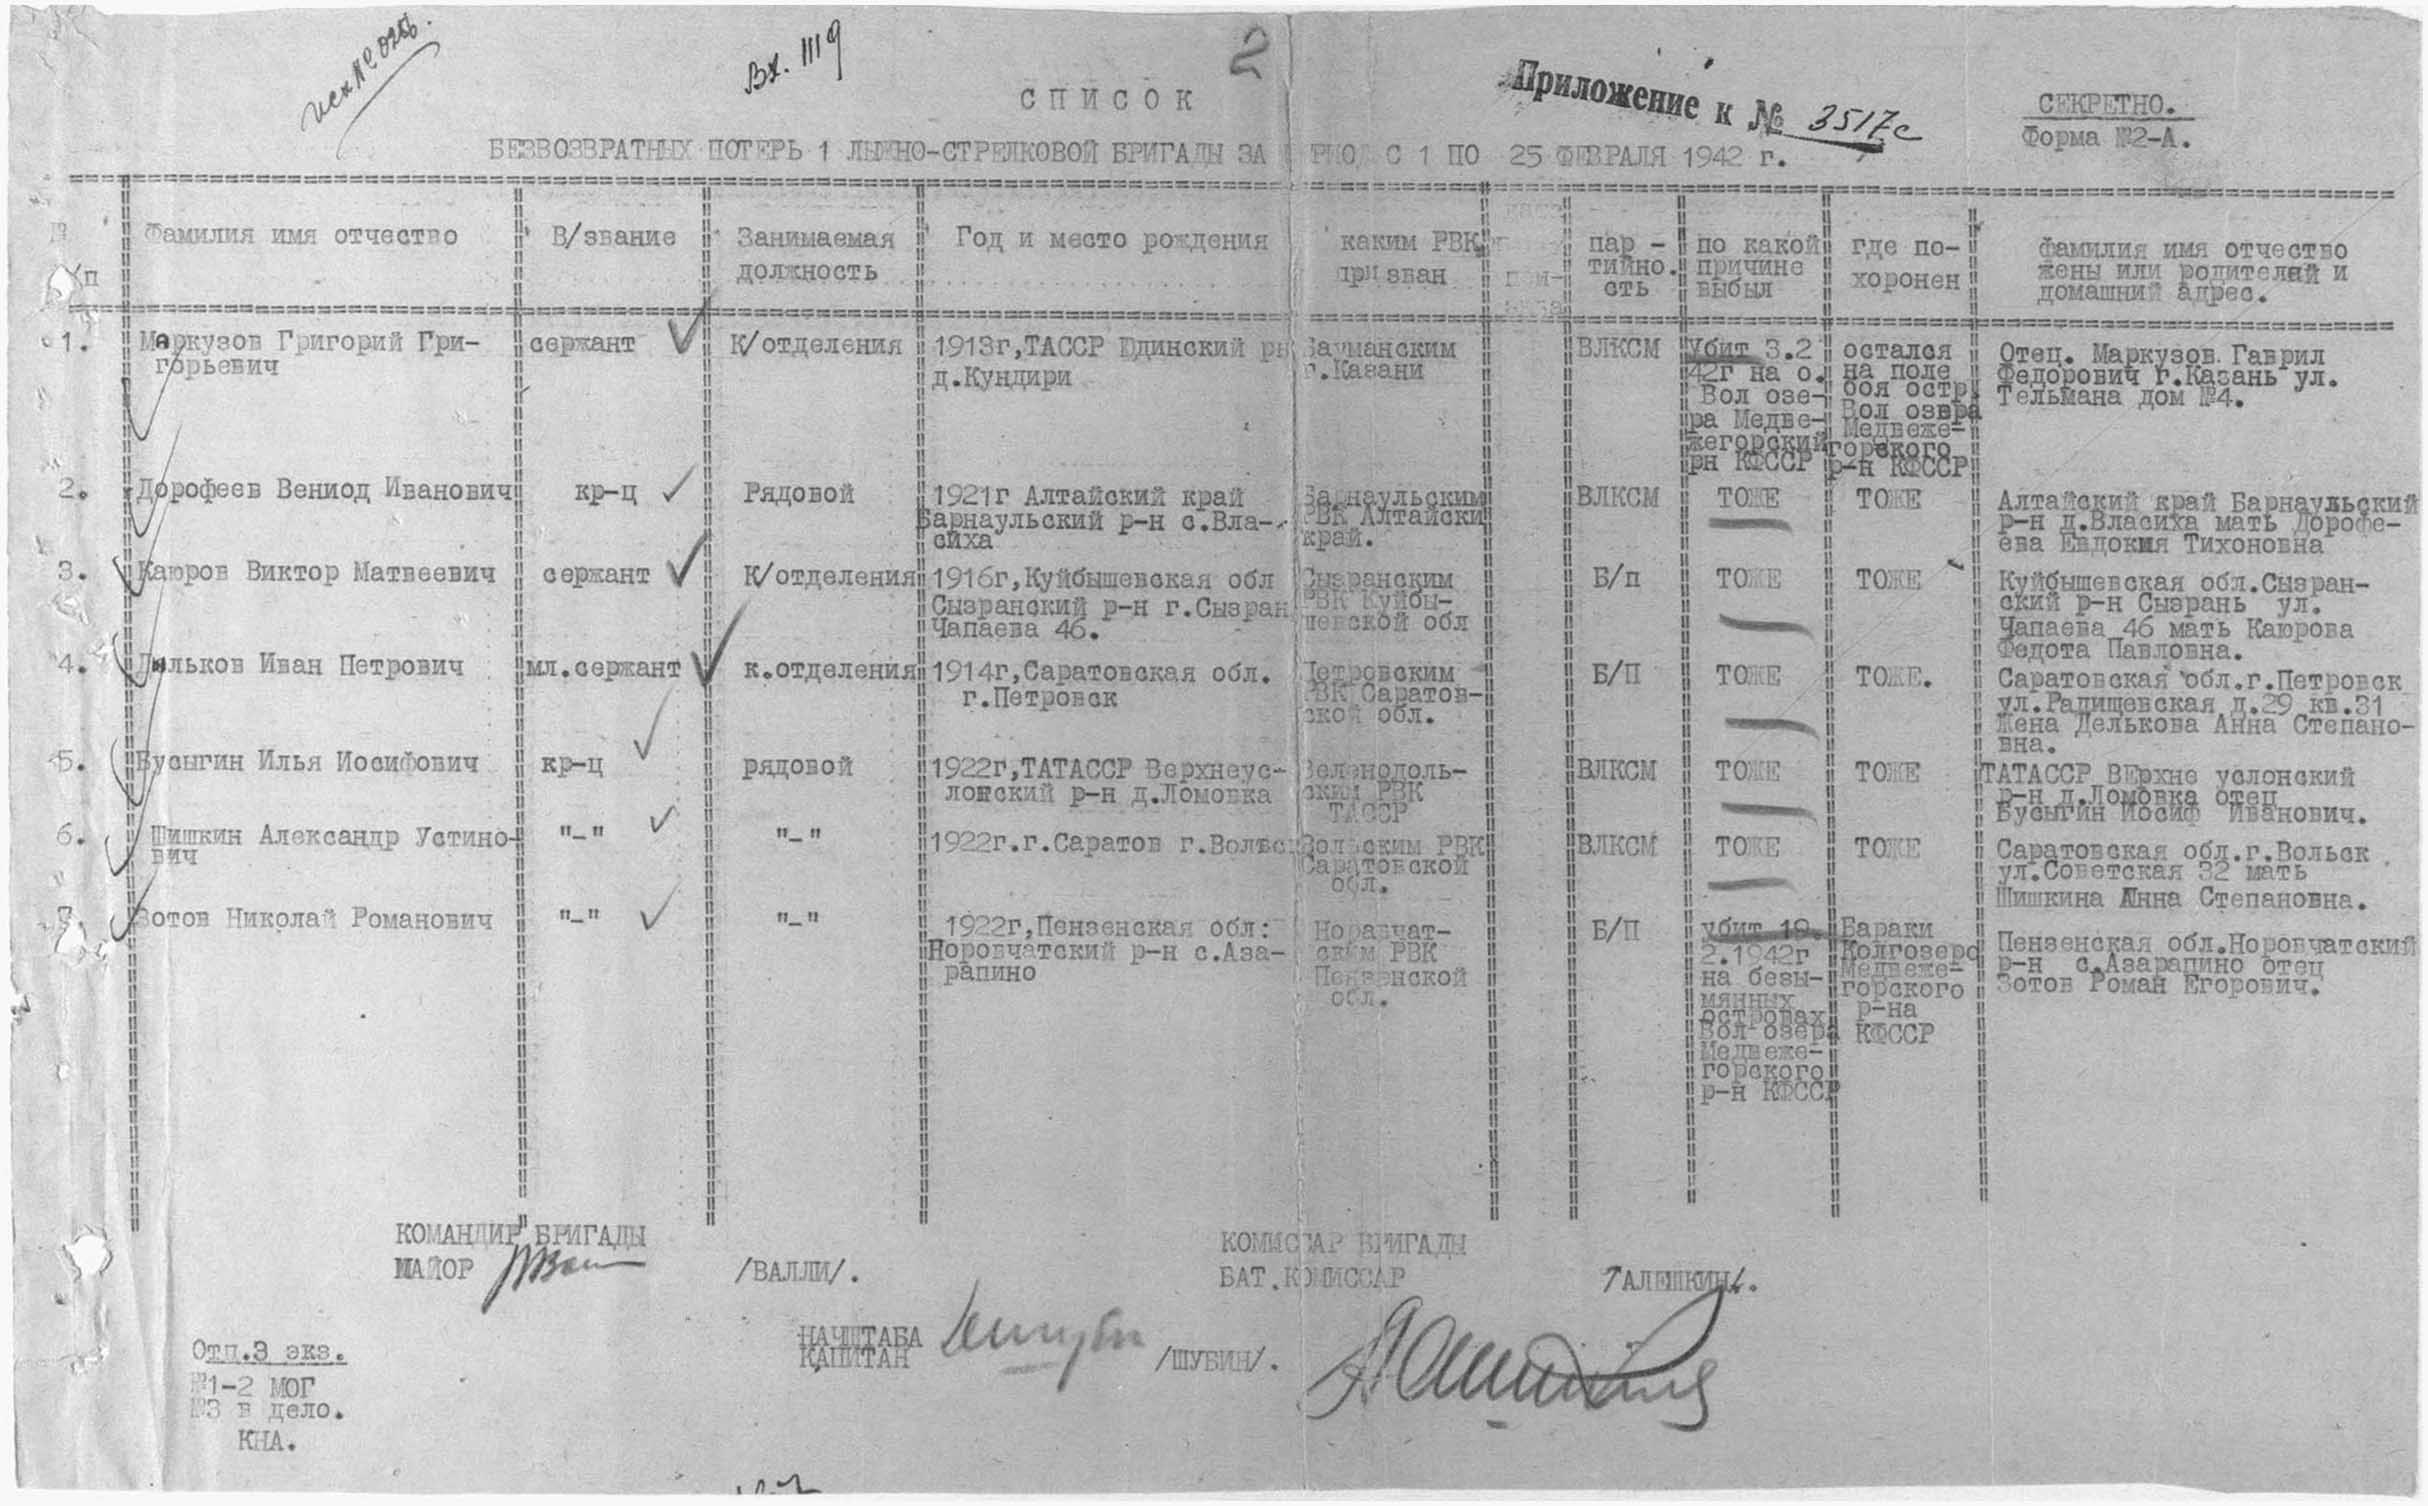 Вх. 1119
2
СПИСОК
Приложение к № 3517с
СЕКРЕТНО.
Форма №2-А.
БЕЗВОЗВРАТНЫХ ПОТЕРЬ 1 ЛЫЖНО-СТРЕЛКОВОЙ БРИГАДЫ ЗА С 1 ПО 25 ФЕВРАЛЯ 1942 г.
п
Фамилия имя отчество
В/звание
Занимаемая
должность
Год и место рождения
каким РВК
призван
пар -
тийно.
сть
по какой
причине
выбыл
где по-
хоронен
фамилия имя отчество
жены или родителей и
домашний адрес.
1.
Маркузов Григорий Гри-
горьевич
сержант
К/отделения
1913г,ТАССР Юдинский рн
д.Кундири
Бауманским
г.Казани
ВЛКСМ
Убит 3.2
42г на о.
Вол озе-
ра Медве-
жегорский
рн КФССР
остался
на поле
боя остр.
Вол озера
Медвеже-
горского
р-н КФССР
Отец. Маркузов Гаврил
Федорович г.Казань ул.
Тельмана дом №4.
2.
Дорофеев Вениод Иванович
кр-ц
Рядовой
1921г Алтайский край
Барнаульский р-н с.Вла-
сиха
Барнаульским
РВК Алтайски
край.
ВЛКСМ
ТОЖЕ
ТОЖЕ
Алтайский край Барнаульский
р-н д.Власиха мать Дорофе-
ева Евдокия Тихоновна
3.
Каюров Виктор Матвеевич
сержант
К/отделения
1916г,Куйбышевская обл
Сызранский р-н г.Сызран
Чапаева 46.
Сызранским
РВК Куйбы-
шевской обл
Б/п
ТОЖЕ
ТОЖЕ
Куйбышевская обл.Сызран-
ский р-н Сызрань ул.
Чапаева 46 мать Каюрова
Федота Павловна.
4.
Дельков Иван Петрович
мл.сержант
к.отделения
1914г,Саратовская обл.
г.Петровск
Петровским
РВК Саратов-
ской обл.
Б/П
ТОЖЕ
ТОЖЕ.
Саратовская обл.г.Петровск
ул.Радищевская д.29 кв.31
Жена Делькова Анна Степано-
вна.
5.
Бусыгин Илья Иосифович
кр-ц
рядовой
1922г,ТАТАССР Верхнеус-
лонский р-н д.Ломовка
Зеленодоль-
ским РВК
ТАССР
ВЛКСМ
ТОЖЕ
ТОЖЕ
ТАТАССР ВЕрхне услонский
р-н д.Ломовка отец
Бусыгин Иосиф Иванович.
6.
Шишкин Александр Устино-
вич
"-"
"-"
1922г.г.Саратов г.Вольск
Вольским РВК
Саратовской
обл.
ВЛКСМ
ТОЖЕ
ТОЖЕ
Саратовская обл.г.Вольск
ул.Советская 32 мать
Шишкина Анна Степановна.
7.
Зотов Николай Романович
"-"
"-"
1922г,Пензенская обл:
Норовчатский р-н с.Аза-
рапино
Норавчат-
ским РВК
Пензенской
обл.
Б/П
убит 19.
2.1942г
на безы-
мянных
островах
Вол озера
Медвеже-
горского
р-н КФССР
Бараки
Колгозеро
Медвеже-
горского
р-на
КФССР
Пензенская обл.Норовчатский
р-н с.Азарапино отец
Зотов Роман Егорович.
КОМАНДИР БРИГАДЫ
МАЙОР /ВАЛЛИ/.
КОМИССАР БРИГАДЫ
БАТ.КОМИССАР /АЛЕШКИН/.
НАЧШТАБА
КАПИТАН /ШУБИН/.
Отп.3 экз.
№1-2 МОГ
№3 в дело.
КНА.